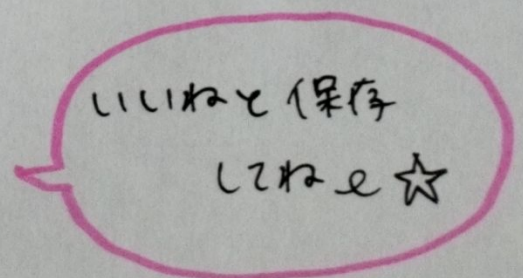 いいねと保存
してねe☆